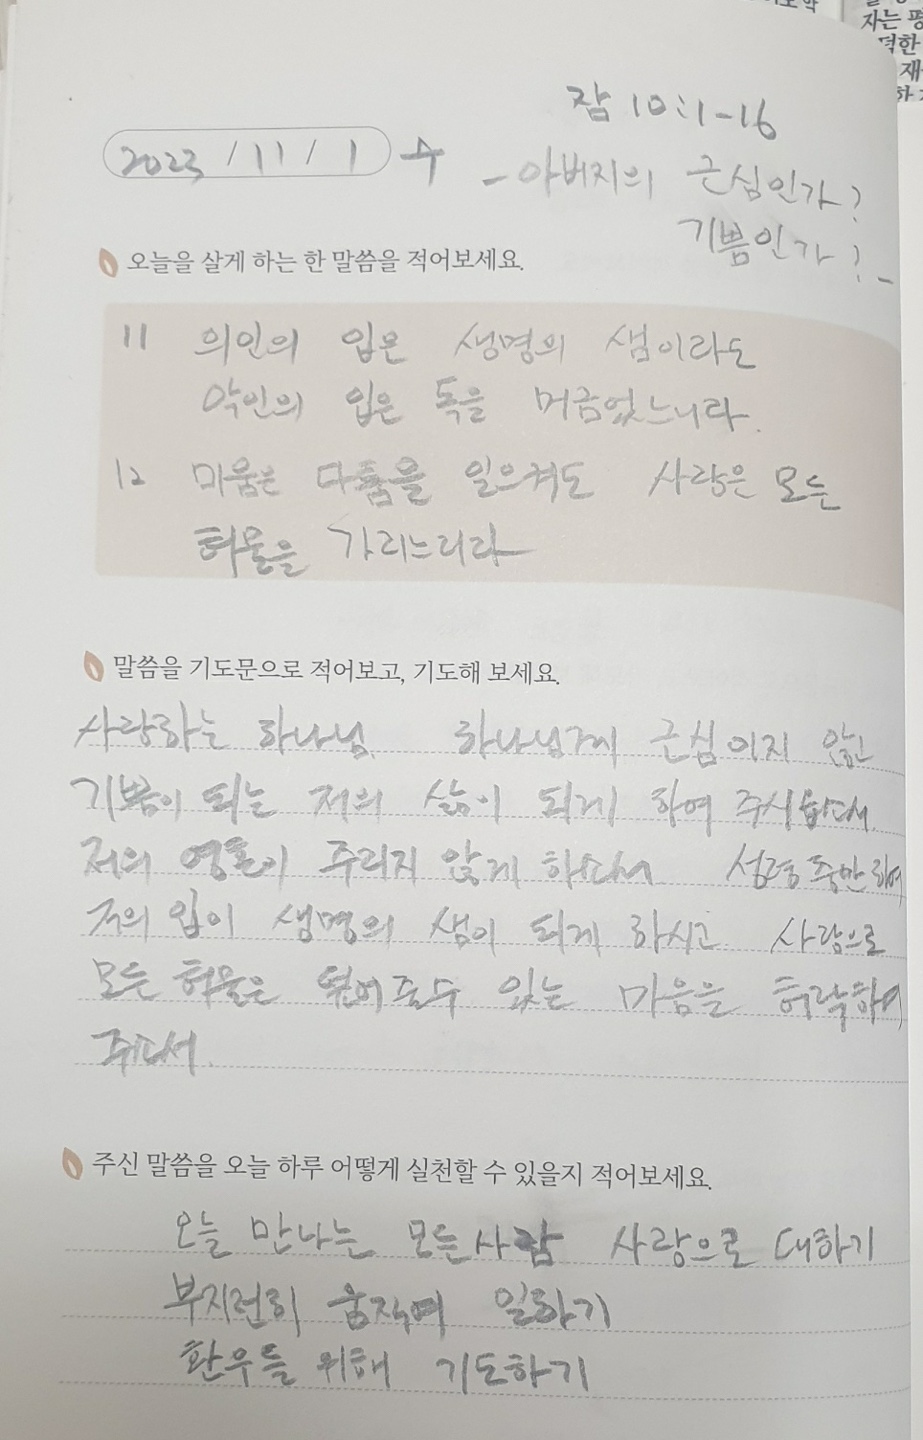 잠 10:1-16
2023 / 11 / 1 수
- 아버지의 근심인가?
기쁨인가? -
오늘을 살게 하는 한 말씀을 적어보세요.
11 의인의 입은 생명의 샘이라도
악인의 입은 독을 머금었느니라.
12 미움은 다툼을 일으켜도 사랑은 모든
허물을 가리느니라
말씀을 기도문으로 적어보고, 기도해 보세요.
사랑하는 하나님 하나님께 근심이지 않고
기쁨이 되는 저의 삶이 되게 하여 주시옵소서.
저의 영혼이 주리지 않게 하소서 성령 충만하여
저의 입이 생명의 샘이 되게 하시고 사랑으로
모든 허물은 덮어줄수 있는 마음을 허락하여
주소서.
주신 말씀을 오늘 하루 어떻게 실천할 수 있을지 적어보세요.
오늘 만나는 모든사람 사랑으로 대하기
부지런히 움직여 일하기
환우들 위해 기도하기
자는 평